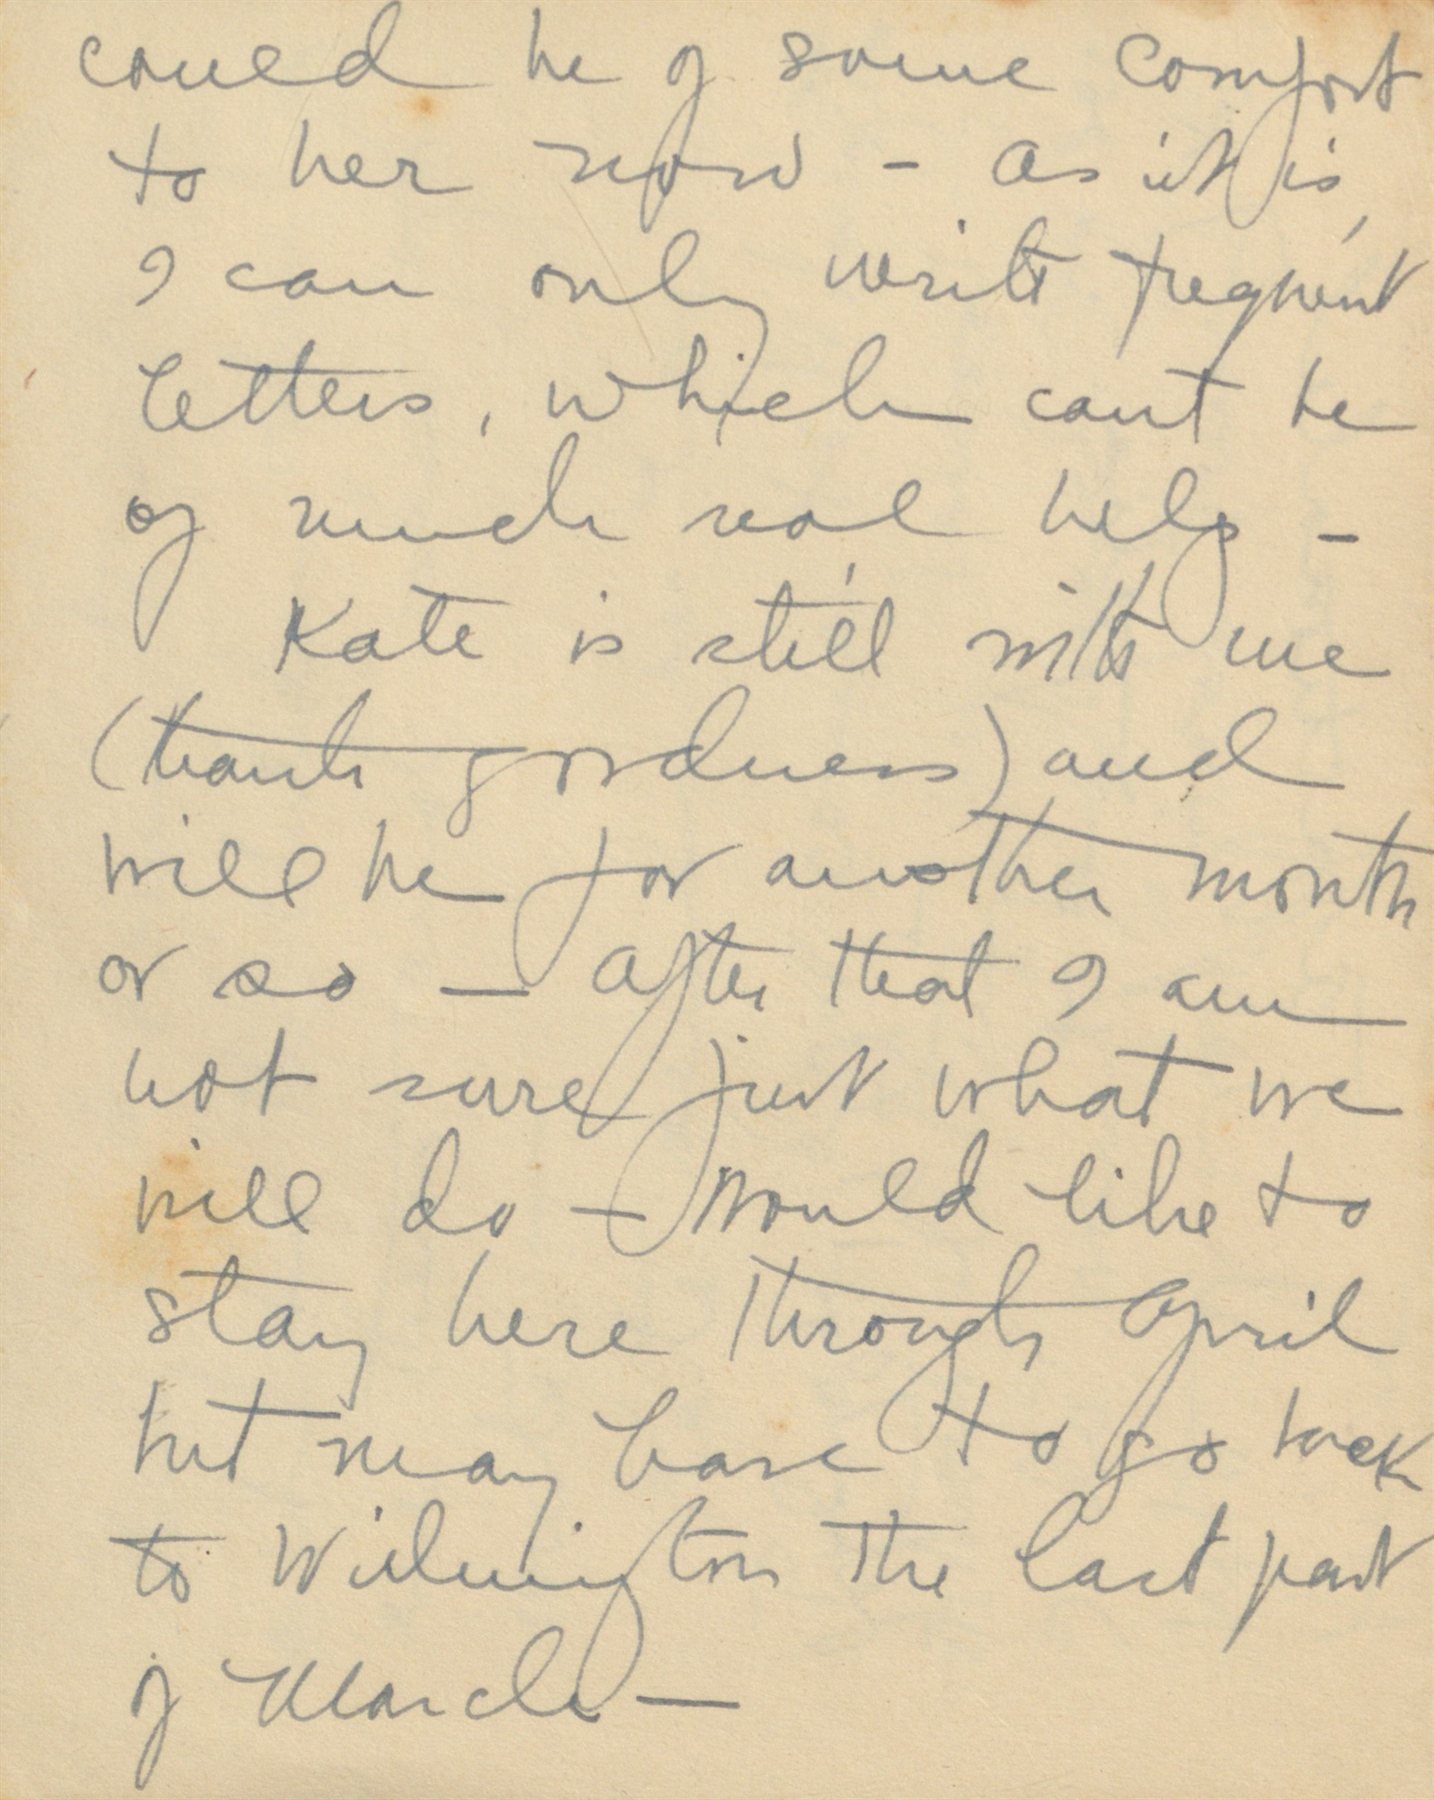 could be of some comfort
to her now - as it is,
I can only write frequent
letters, which can't be
of much real help -
Kate is still with me
(thank goodness) and
will be for another month
or so - after that I am
not sure just what we
will do - Would like to
stay here through April
but may have to go back
to Wilmington the last part
of March -